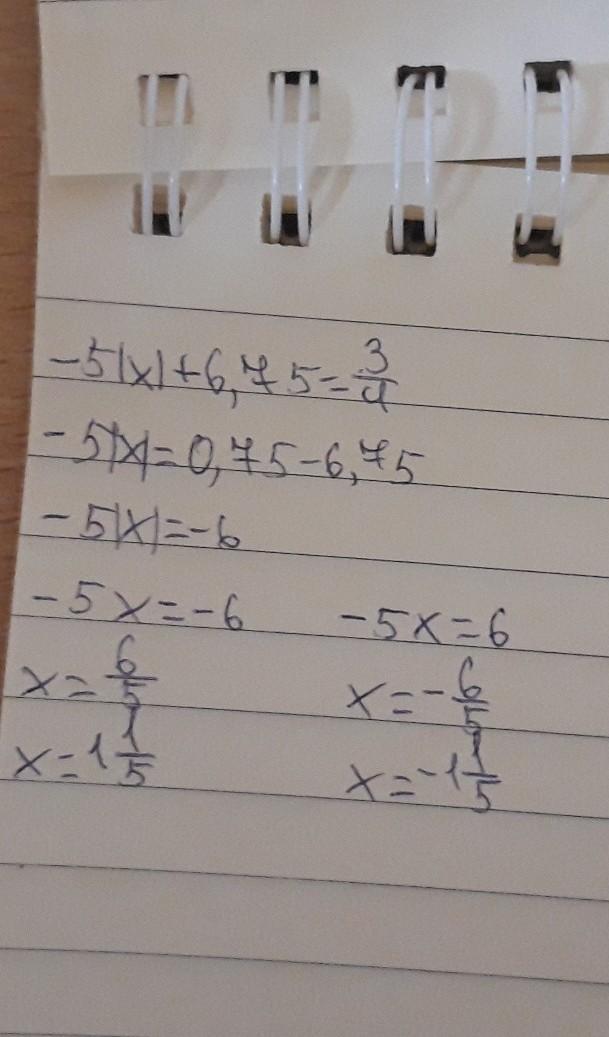 -5|x|+6,75=3/4
-5|x|=0,75-6,75
-5|x|=-6
-5x=-6 -5x=6
x=6/5 x=-6/5
x=1 1/5 x=-1 1/5